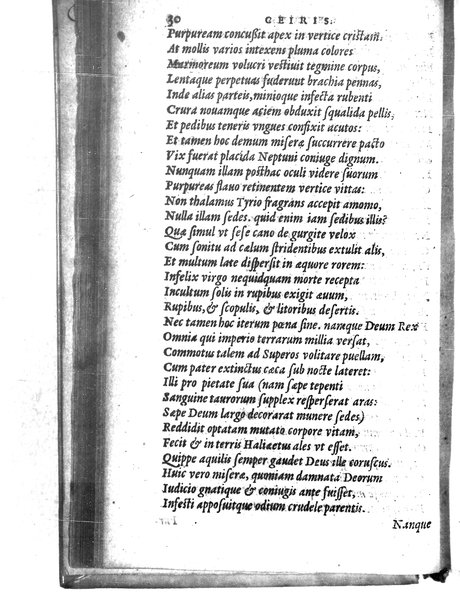 30 CEIRIS.
Purpuream concuſsit apex in vertice criſtam:
At mollis varios intexens pluma colores
Marmoreum volucri veſtiuit tegmine corpus,
Lentaque perpetuas fuderunt brachia pennas,
Inde alias parteis, minioque infecta rubenti
Crura nouamque aciem obduxit ſqualida pellis,
Et pedibus teneris vngues confixit acutos:
Et tamen hoc demum miſeræ ſuccurrere pacto
Vix fuerat placida Neptuni coniuge dignum.
Nunquam illam poſthac oculi videre ſuorum
Purpureas flauo retinentem vertice vittas:
Non thalamus Tyrio fragrans accepit amomo,
Nulla illam ſedes. quid enim iam ſedibus illis?
Quæ ſimul vt ſeſe cano de gurgite velox
Cum ſonitu ad cælum ſtridentibus extulit alis,
Et multum late diſperſit in æquore rorem:
Infelix virgo nequidquam morte recepta
Incultum ſolis in rupibus exigit æuum,
Rupibus, & ſcopulis, & litoribus deſertis.
Nec tamen hoc iterum pœna ſine. namque Deum Rex
Omnia qui imperio terrarum millia verſat,
Commotus talem ad Superos volitare puellam,
Cum pater extinctus cæca ſub nocte lateret:
Illi pro pietate ſua (nam ſæpe tepenti
Sanguine taurorum ſupplex reſperſerat aras:
Sæpe Deum largo decorarat munere ſedes)
Reddidit optatam mutato corpore vitam,
Fecit & in terris Haliæetus ales vt eſſet.
Quippe aquilis ſemper gaudet Deus ille coruſcus.
Huic vero miſeræ, quoniam damnata Deorum
Iudicio gnatique & coniugis ante fuiſſet,
Infeſti appoſuitque odium crudele parentis.
Nanque